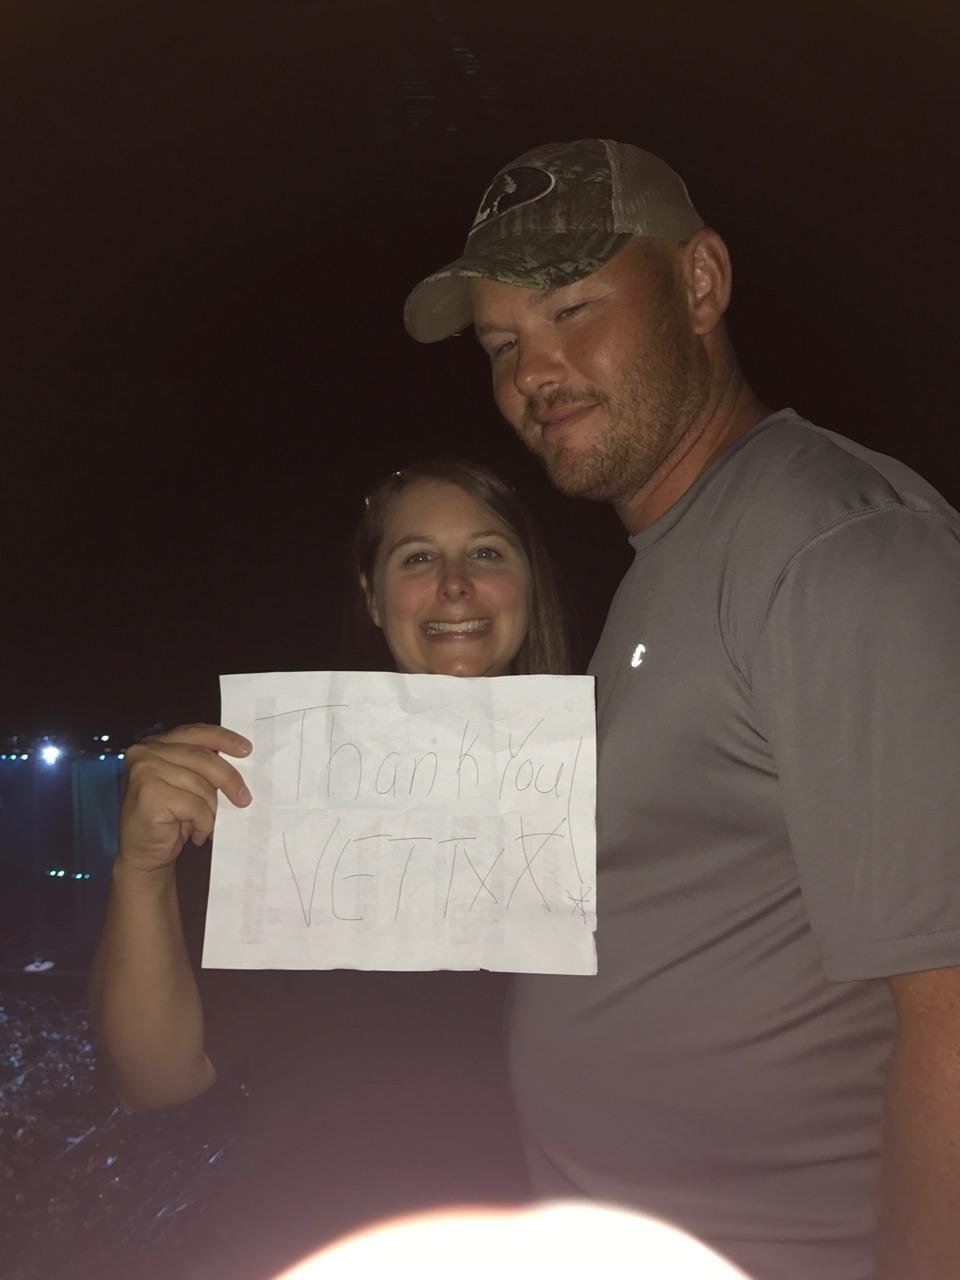 Thank You!
VETTXX*